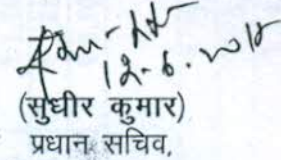 12-6-2018
(सुधीर कुमार)
प्रधान सचिव,